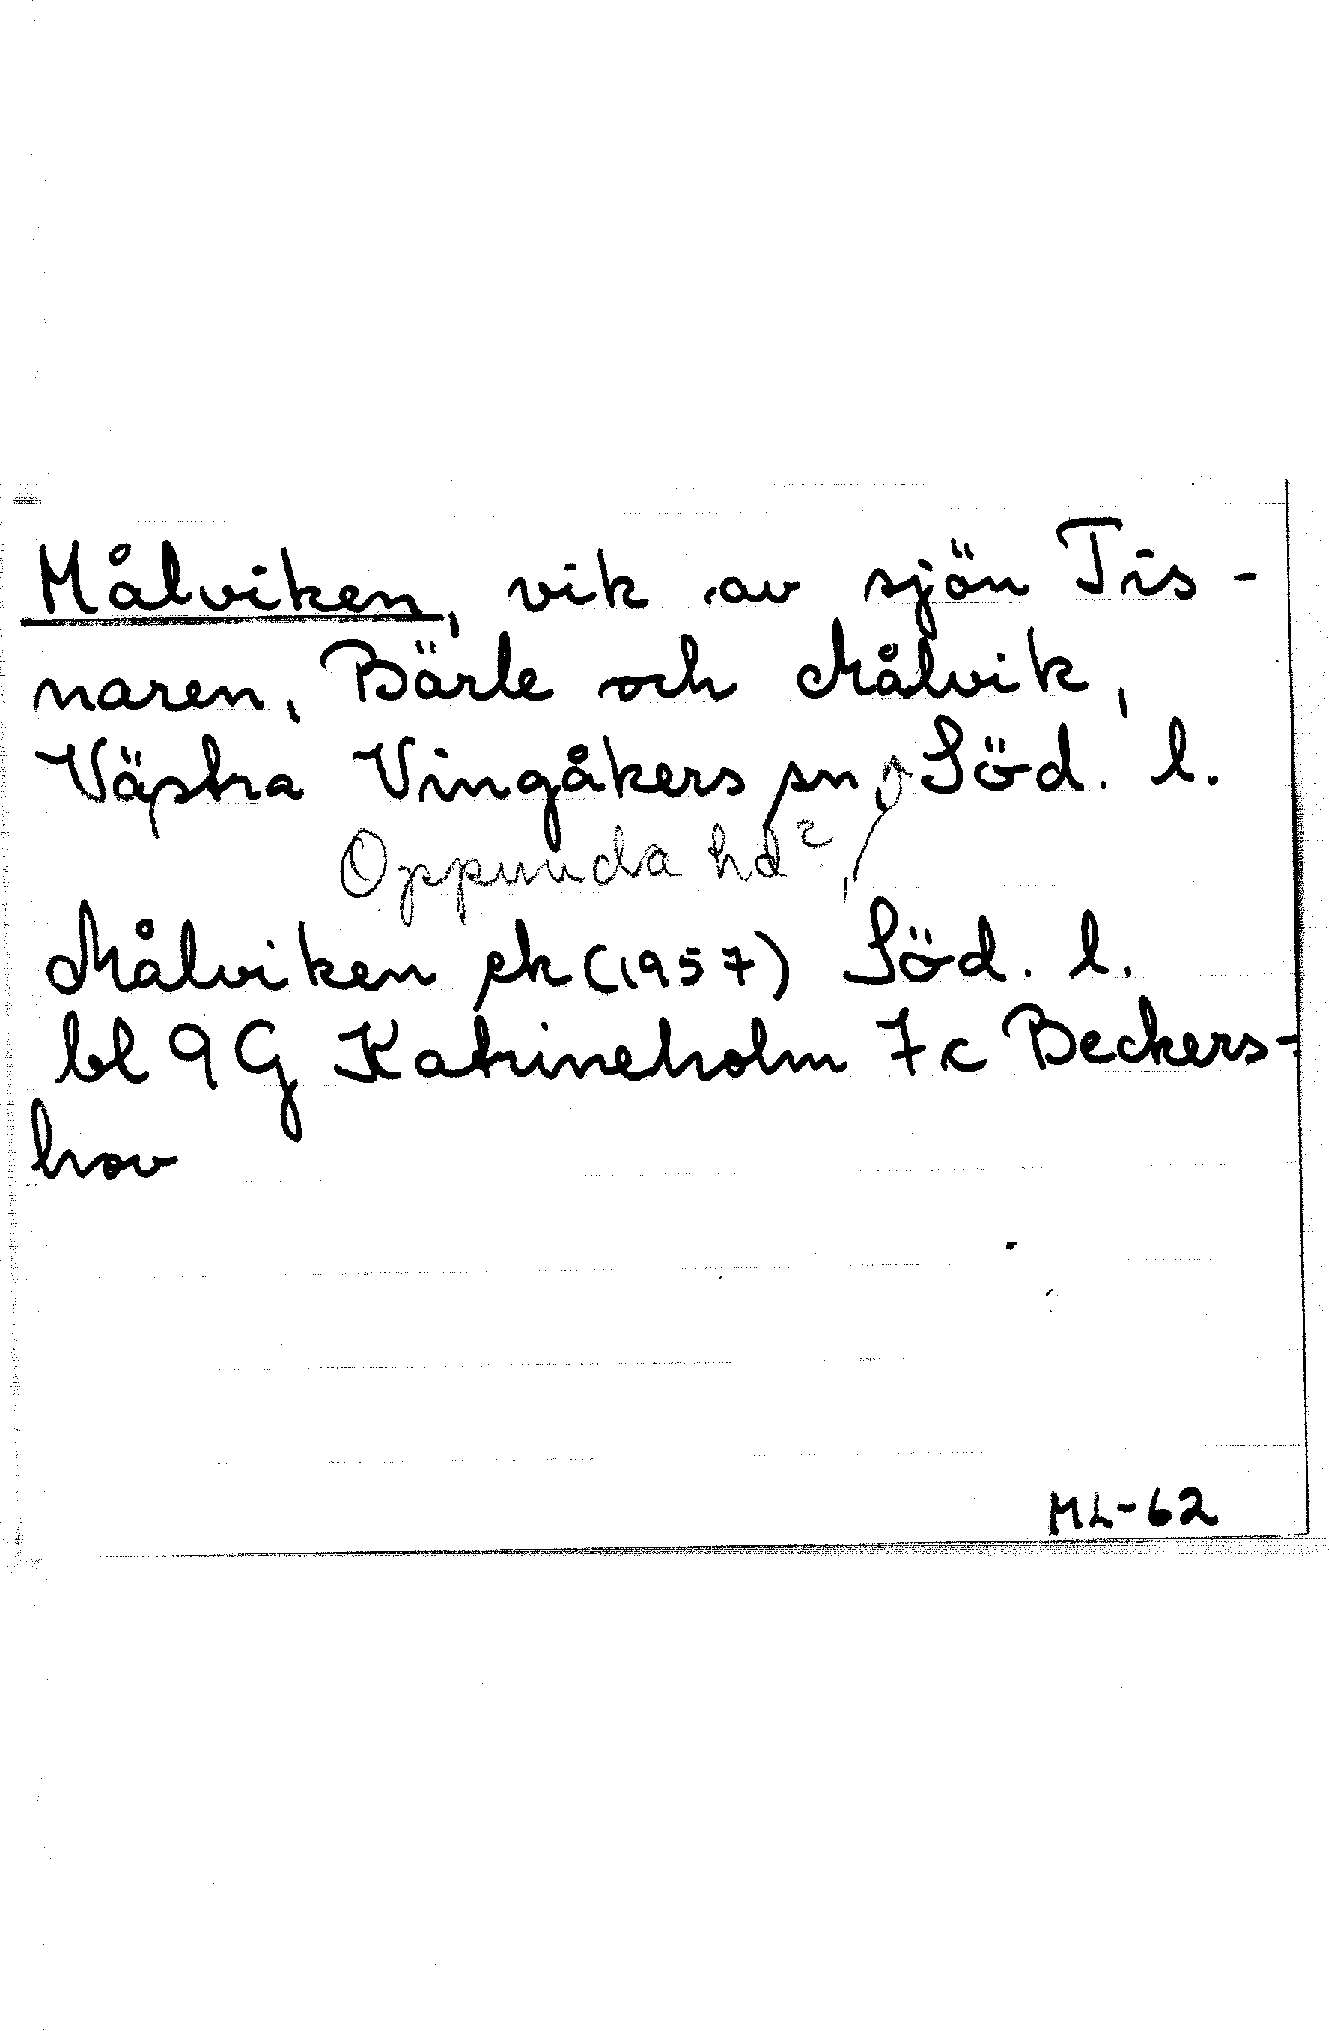 Målviken, vik av sjön Tis-
naren, Bärle och Målvik,
Västra Vingåkers sn, Söd. l.
Oppunda hd,
Målviken ek (1957) Söd. l.
bl 9G Katrineholm 7c Beckers-
hov
ML-62